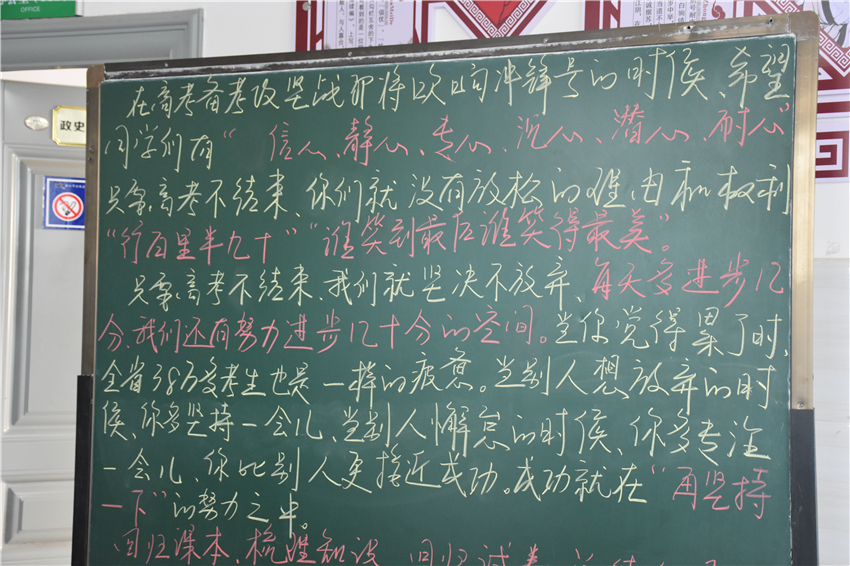 OFFICE
政史
在高考备考攻坚战即将吹响冲锋号的时候、希望
同学们有“信心、静心、专心、沉心、潜心、耐心”
只要高考不结束、你们就没有放松的理由和权利
“行百里半九十”“谁笑到最后谁笑得最美”。
只要高考不结束、我们就坚决不放弃、每天多进步几
分、我们还有努力进步几十分的空间。当你觉得累了时、
全省38万多考生也是一样的疲惫。当别人想放弃的时
候、你多坚持一会儿、当别人懈怠的时候、你多专注
一会儿、你比别人更接近成功。成功就在“再坚持
一下”的努力之中。
回归课本、梳理知识、回归试卷